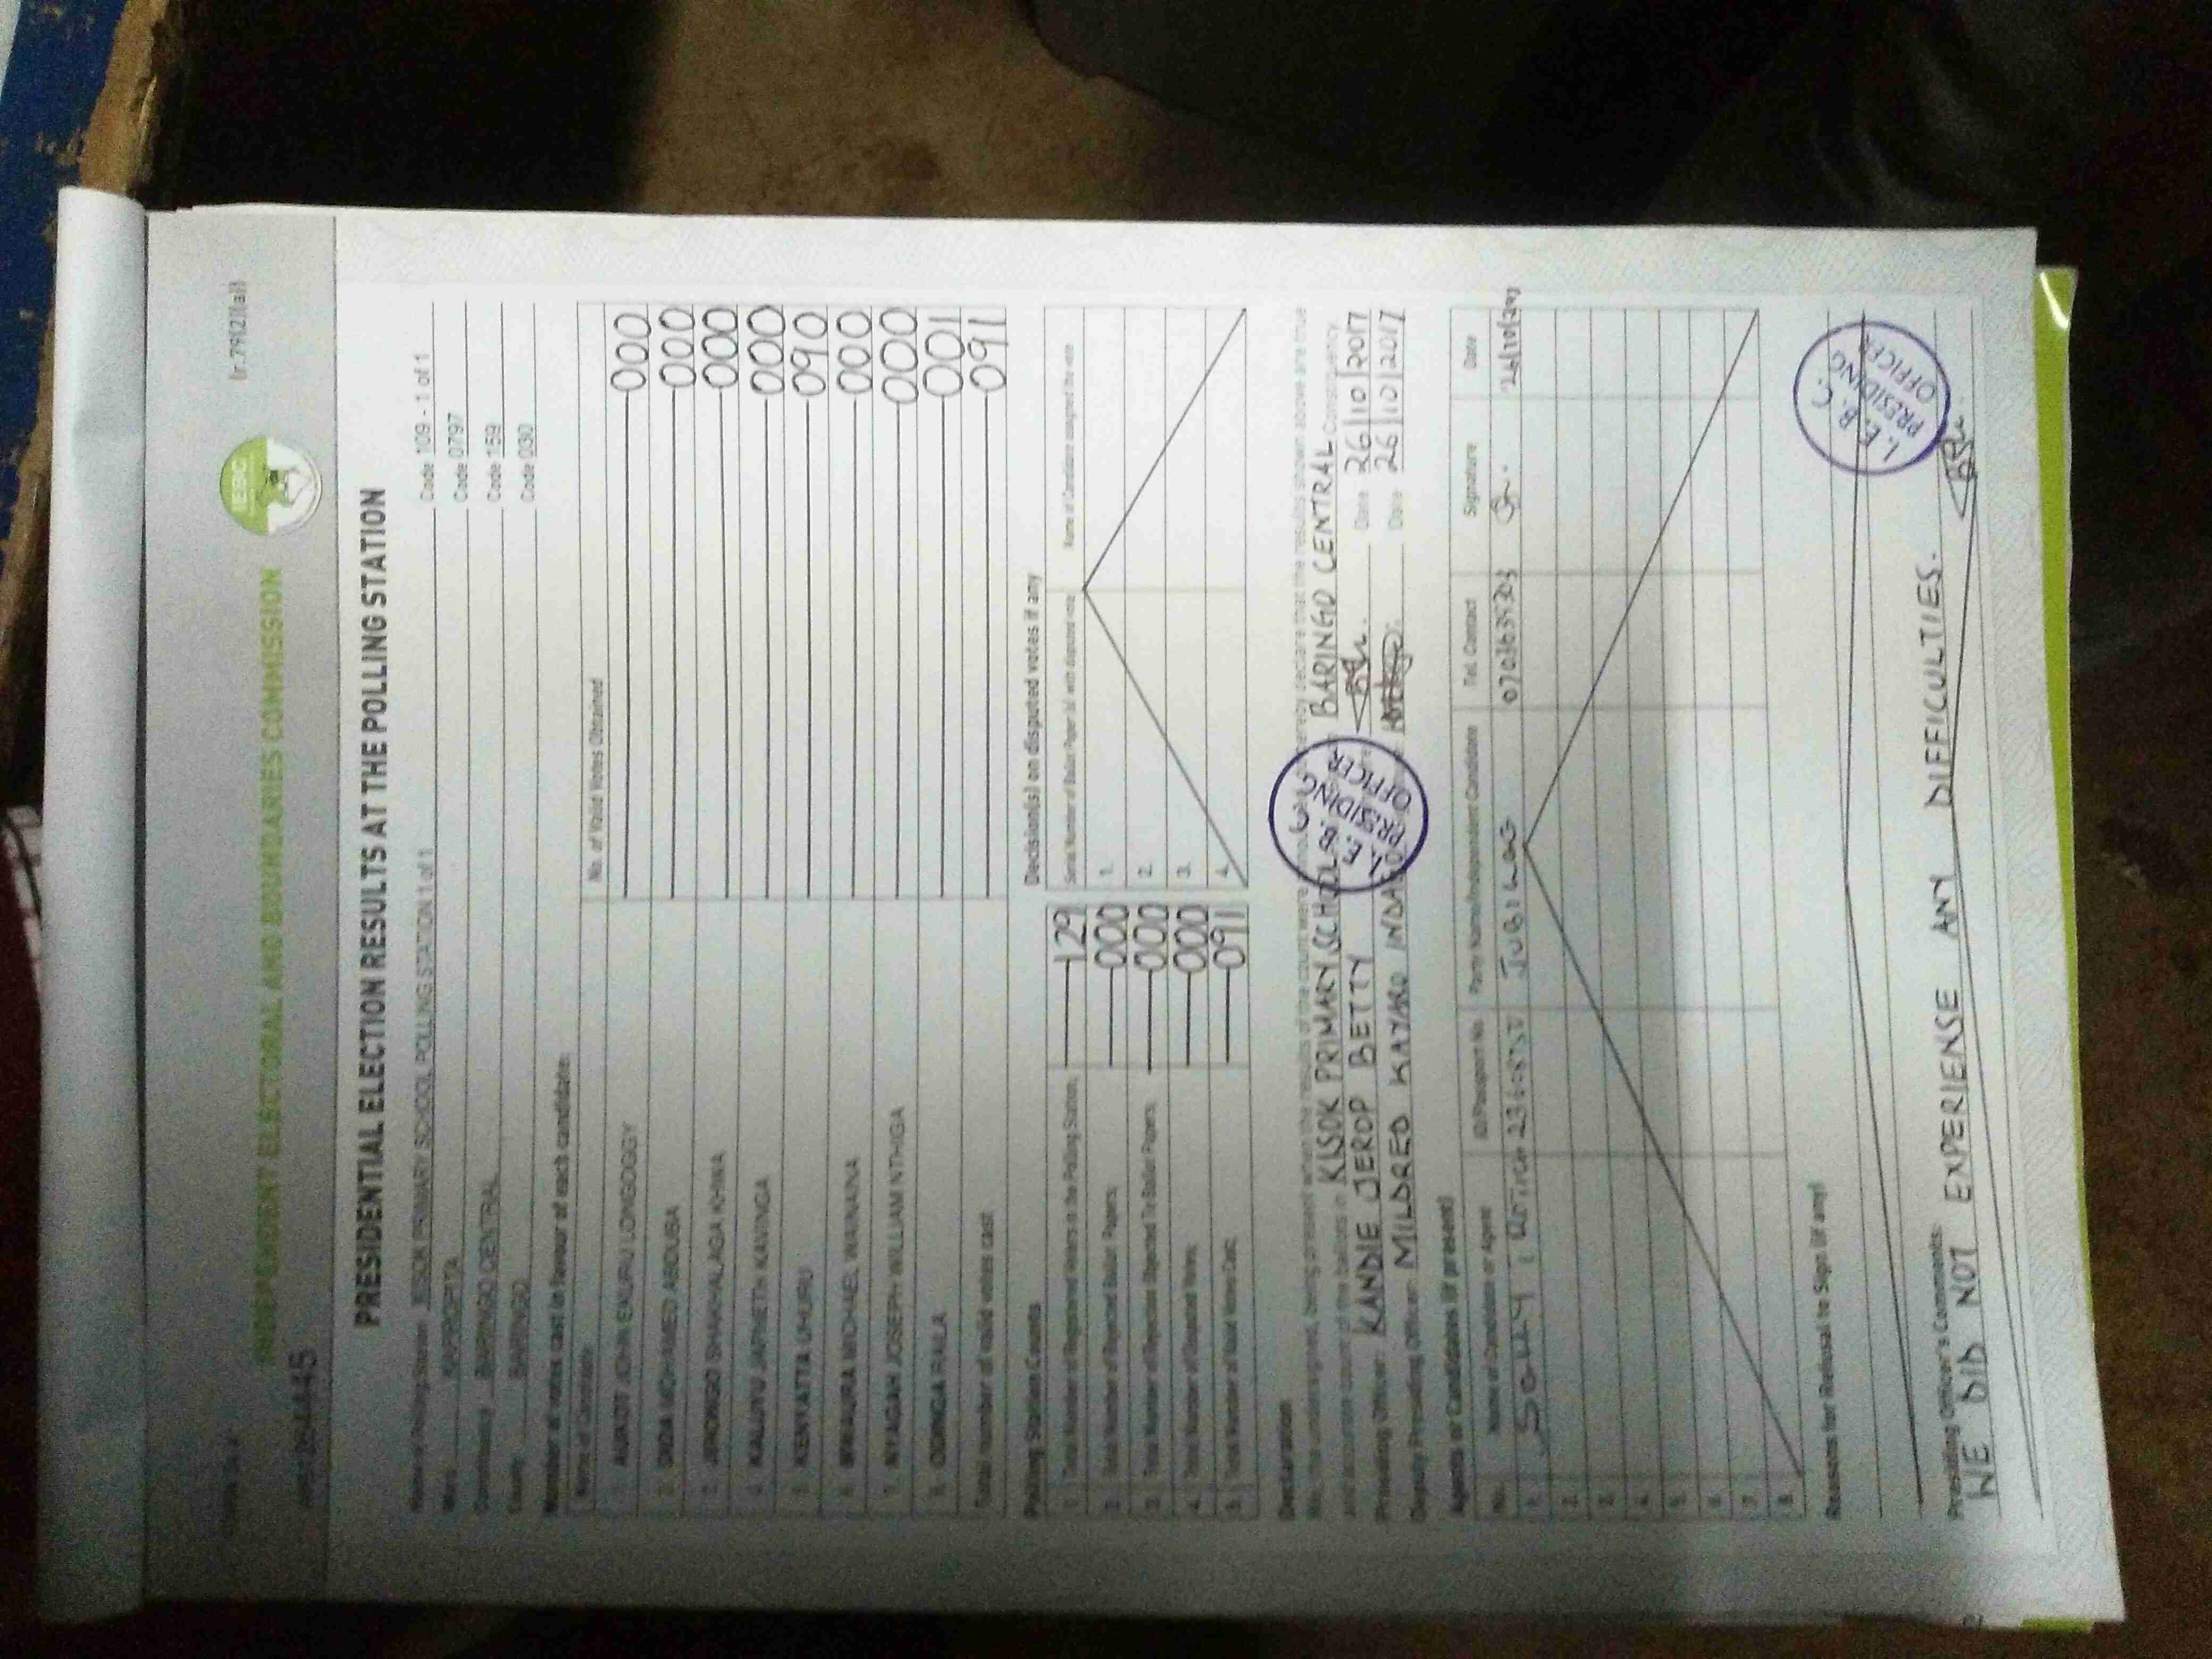 (r.79(2)(a))
IEBC
INDEPENDENT ELECTORAL AND BOUNDARIES COMMISSION
PRESIDENTIAL ELECTION RESULTS AT THE POLLING STATION
Name of Polling Station KISOK PRIMARY SCHOOL POLLING STATION 1 of 1 Code 109 - 1 of 1
Ward KAPROPITA Code 0797
Constituency BARINGO CENTRAL Code 159
County BARINGO Code 030
Number of votes cast in favour of each candidate:
Name of Candidate No. of Valid Votes Obtained
1. AUKOT JOHN EKURU LONGOGGY 000
2. DIDA MOHAMED ABDUBA 000
3. JIRONGO SHAKHALAGA KHWA 000
4. KALUYU JAPHETH KAVINGA 000
5. KENYATTA UHURU 090
6. MWAURA MICHAEL WAINAINA 000
7. NYAGAH JOSEPH WILLIAM NTHIGA 000
8. ODINGA RAILA 001
Total number of valid votes cast 091
Polling Station Counts
1. Total Number of Registered Voters in the Polling Station: 129
2. Total Number of Rejected Ballot Papers: 000
3. Total Number of Rejection Objected To Ballot Papers: 000
4. Total Number of Disputed Votes: 000
5. Total Number of Valid Votes Cast: 091
Decision(s) on disputed votes if any
Serial Number of Ballot Paper (s) with disputed vote Name of Candidate assigned the vote
1.
2.
3.
4.
Declaration
We, the undersigned, being present when the results of the count were declare that the results shown above are true
and accurate count of the ballots in KISOK PRIMARY SCHOOL BARINGO CENTRAL Constituency
Presiding Officer: KANDIE JEROP BETTY Date 26/10/2017
Deputy Presiding Officer: MILDRED Date 26/10/2017
I. E. B. C.
PRESIDING
OFFICER
Agents or Candidates (if present)
No. Name of Candidate or Agent ID/Passport No. Party Name/Independent Candidate Tel. Contact Signature Date
1. 0703635303
2.
3.
4.
5.
6.
7.
8.
Reasons for Refusal to Sign (if any)
I. E. B. C.
PRESIDING
OFFICER
Presiding Officer's Comments:
WE DID NOT EXPERIENSE ANY DIFFICULTIES.